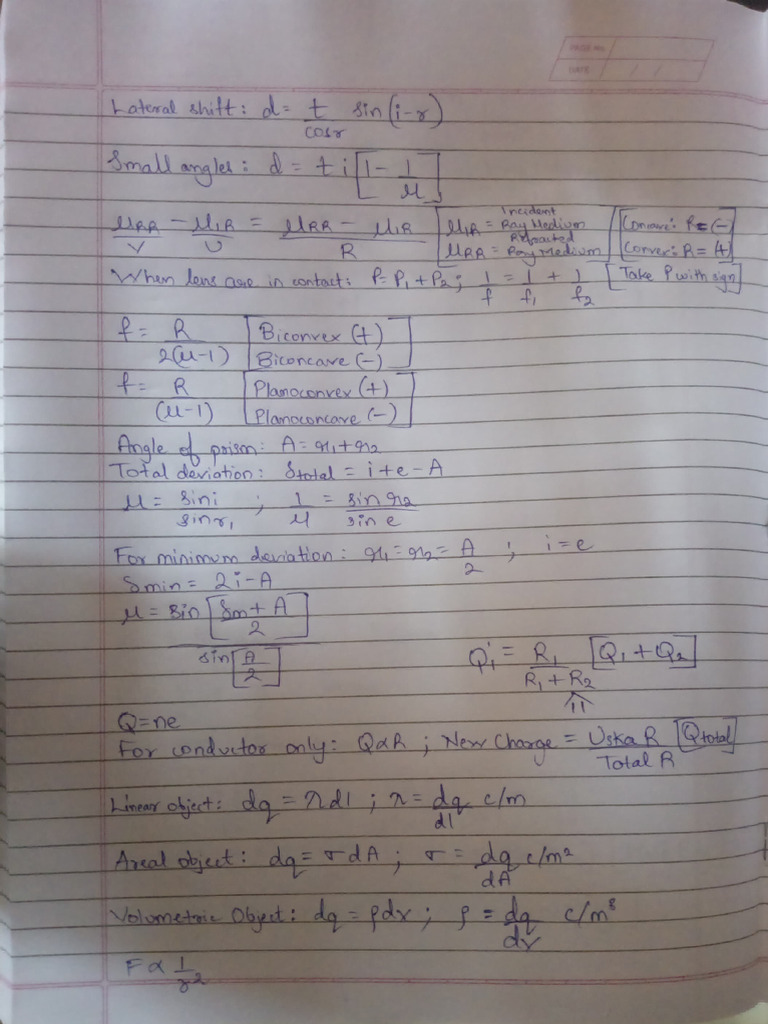 PAGE NO.
DATE / /
Lateral shift: d = t/cosr sin(i-r)
Small angles: d = t i [1 - 1/μ]
μRR/V - μIR/U = (μRR - μIR)/R [μIR = Incident Ray Medium [Concave: R = (-)
μRR = Refracted Ray Medium] Convex: R = (+)]
When lens are in contact: P = P₁ + P₂; 1/f = 1/f₁ + 1/f₂ [Take P with sign]
f = R/2(μ-1) [Biconvex (+)
Biconcave (-)]
f = R/(μ-1) [Planoconvex (+)
Planoconcave (-)]
Angle of prism: A = r₁ + r₂
Total deviation: δtotal = i + e - A
μ = sini/sinr₁ ; 1/μ = sin r₂/sin e
For minimum deviation: r₁ = r₂ = A/2 ; i = e
δmin = 2i - A
μ = sin[(δm + A)/2]/sin[A/2]
Q₁' = R₁/(R₁ + R₂) [Q₁ + Q₂]
Q = ne
For conductor only: Q∝R ; New Charge = Uska R/Total R [Qtotal]
Linear object: dq = λdl ; λ = dq/dl c/m
Areal object: dq = σdA ; σ = dq/dA c/m²
Volumetric Object: dq = ρdv ; ρ = dq/dv c/m³
F ∝ 1/r²